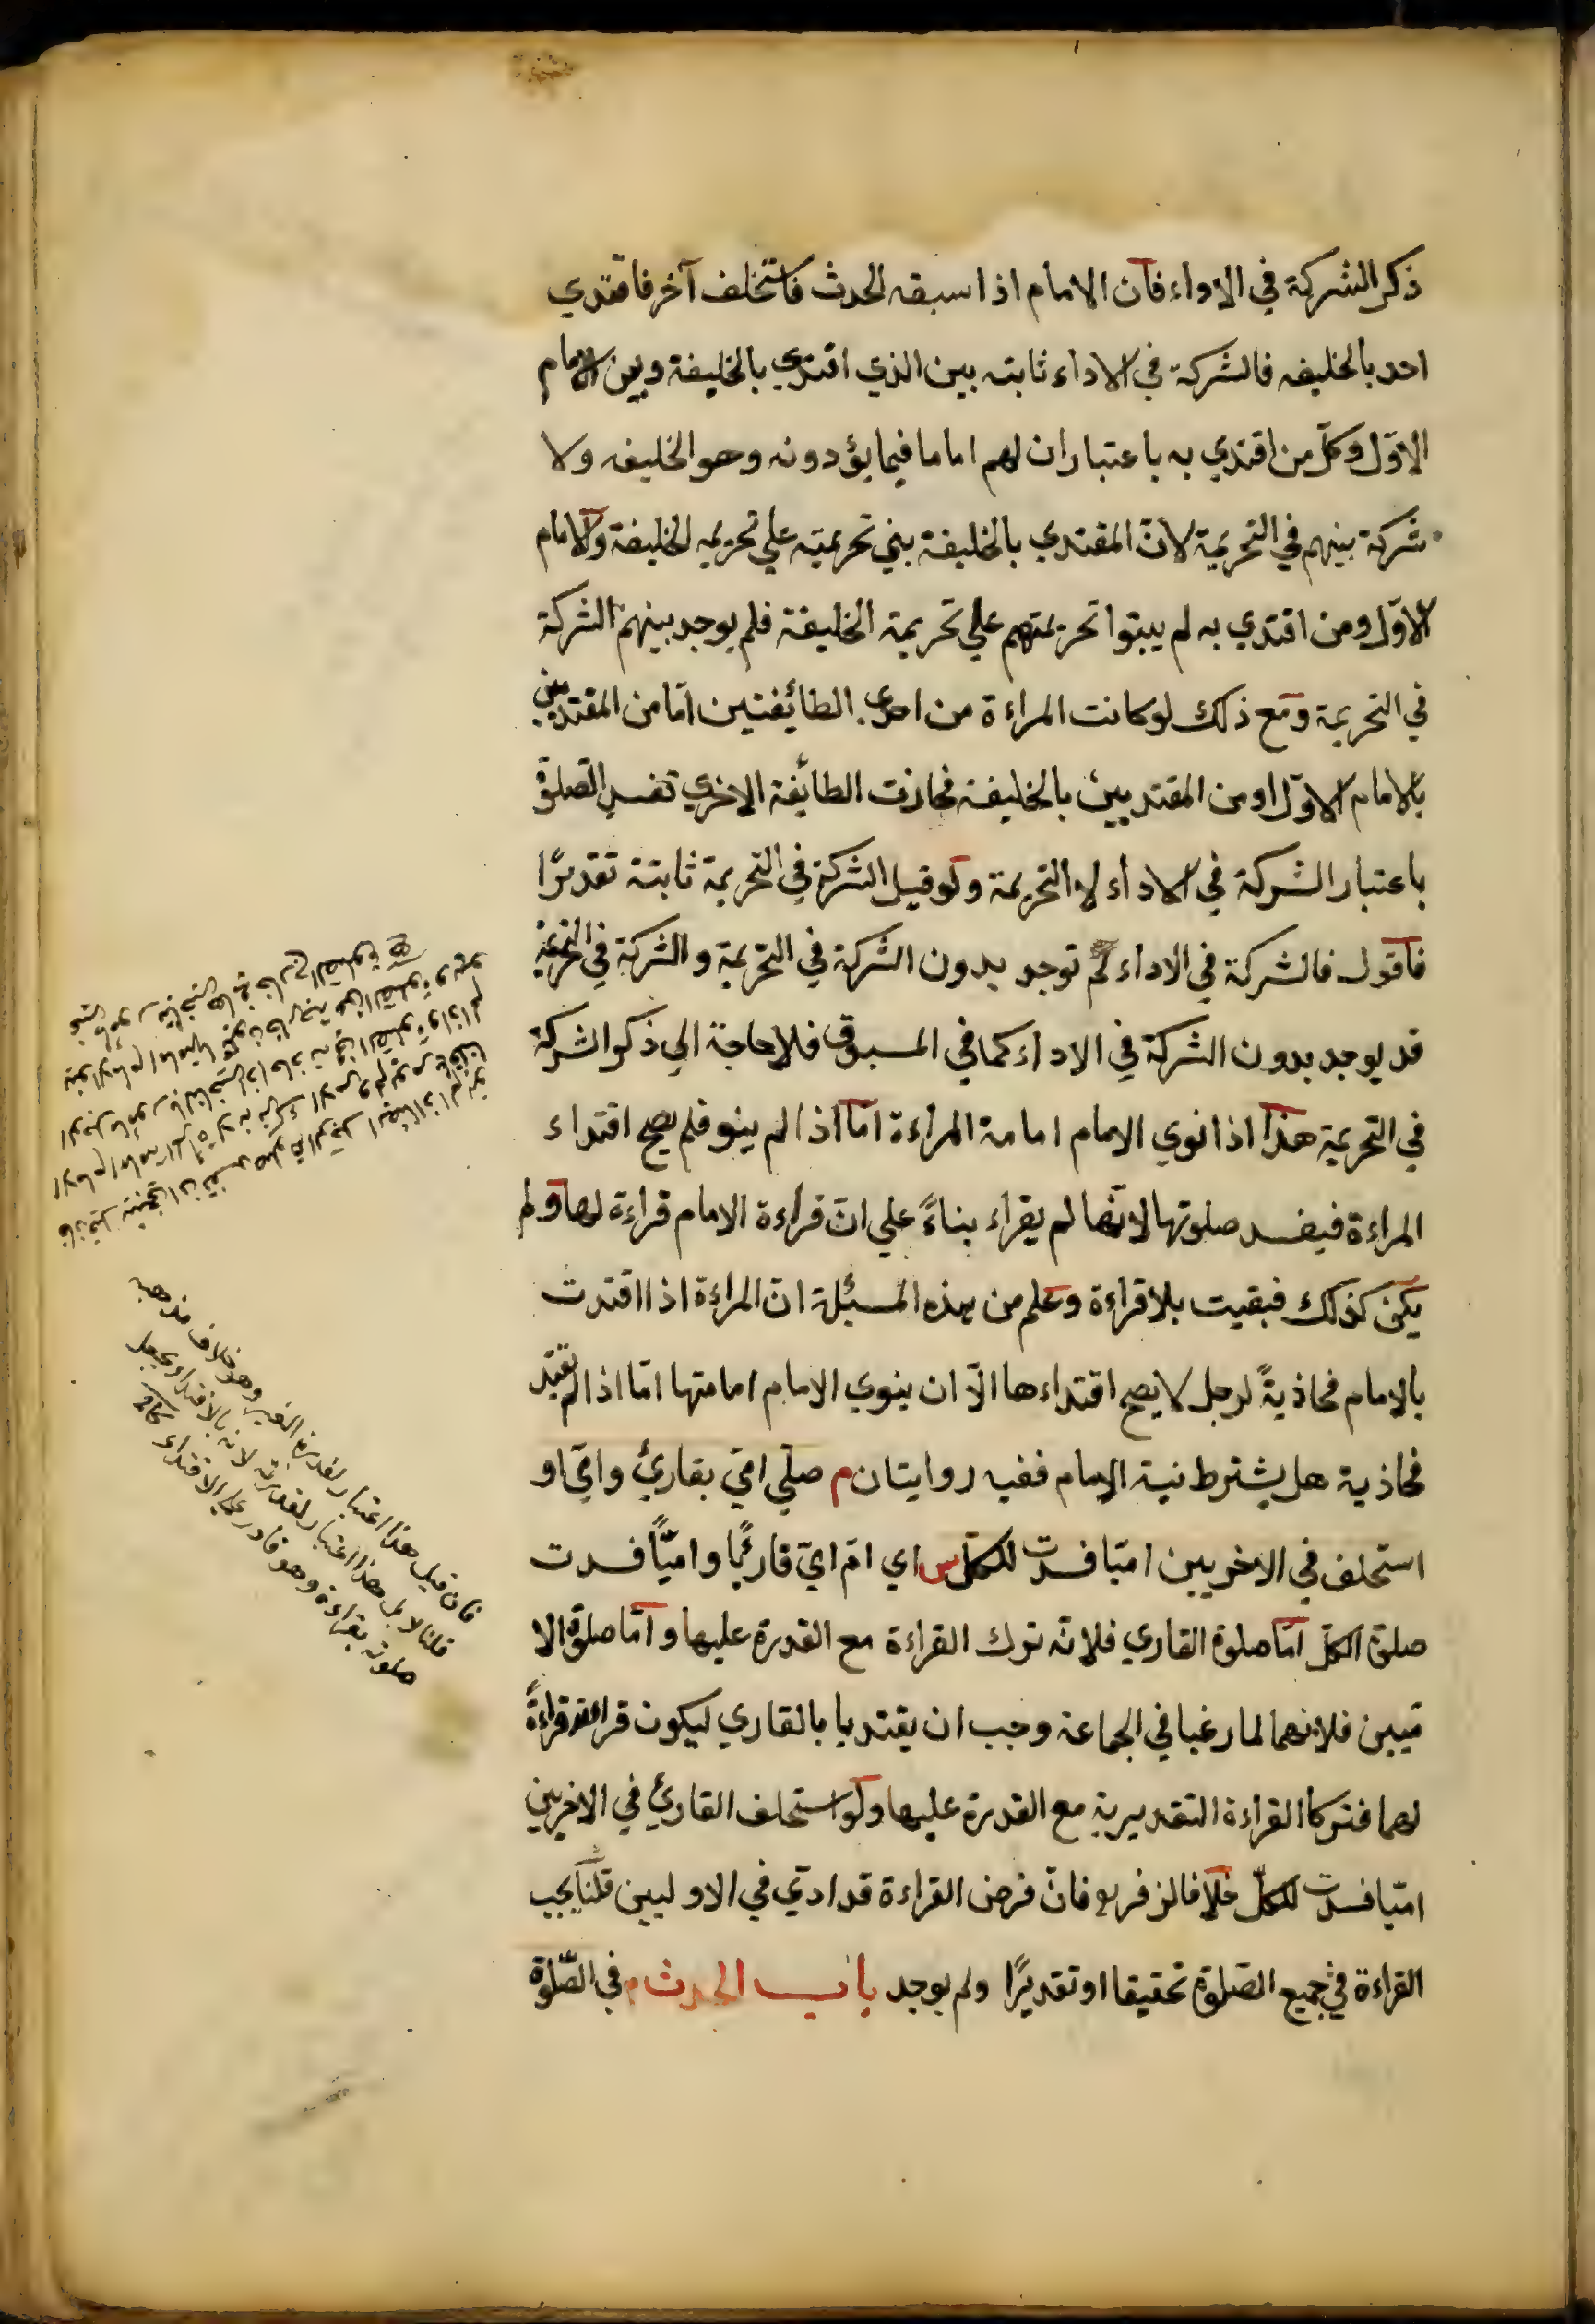 ذكر الشركة في الاداء فان الامام اذا سبقه الحدث فاستخلف آخر فاقتدي
احد بالخليفه فالشركة في الاداء ثابته بين الذي اقتدي بالخليفة وبين الامام
الاوّل وكلّ من اقتدي به باعتبار ان لهم اماما فيما يؤدونه وهو الخليفه ولا
شركة بينهم في التحريمة لانّ المقتدي بالخليفة بني تحريمته علي تحريمه الخليفة والامام
الاوّل ومن اقتدي به لم يبنوا تحريمتهم علي تحريمة الخليفة فلم يوجد بينهم الشركة
في التحريمة ومع ذلك لو كانت المراءة من احدي الطائفتين امّا من المقتديين
بالامام الاوّل او من المقتديين بالخليفة فحاذت الطائفة الاخري تفسد الصلوة
باعتبار الشركة في الاداء لا التحريمة ولو قيل الشركة في التحريمة ثابتة تقديرًا
فاقول فالشركة في الاداء لم توجد بدون الشركة في التحريمة والشركة في التحريمة
قد يوجد بدون الشركة في الاداء كما في المسبوق فلا حاجة الي ذكر الشركة
في التحريمة هذا اذا نوي الامام امامة المراءة امّا اذا لم ينو فلم يصح اقتداء
المراءة فيفسد صلوتها لانّها لم يقراء بناءً علي انّ قراءة الامام قراءة لها ولم
يكن كذلك فبقيت بلا قراءة وعلم من هذه المسئلة انّ المراءة اذا اقتدت
بالامام محاذيةً لرجل لا يصح اقتداءها الّا ان ينوي الامام امامتها امّا اذا لم تقتد
محاذية هل يشترط نية الامام ففيه روايتان م صلّي اميّ بقارئ واميّ او
استخلف في الاخريين اميّا فسدت للكلّ س اي امّ اميّ قارئًا واميّاً فسدت
صلوة الكلّ امّا صلوة القاري فلانّه ترك القراءة مع القدرة عليها وامّا صلوة الا
ميّين فلانهما لما رغبا في الجماعة وجب ان يقتديا بالقاري ليكون قراءته قراءةً
لهما فتركا القراءة التقديرية مع القدرة عليها ولو استخلف القارئ في الاخريين
اميّا فسدت للكلّ خلافا لزفر فانّ فرض القراءة قد ادّي في الاوليين قلنا يجب
القراءة في جميع الصّلوة تحقيقا او تقديرًا ولم يوجد باب الحدث م في الصّلوة
فان قيل هذا اعتبار لقدرة الغير وهو خلاف مذهبه
قلنا لا بل هذا اعتبار لقدرته لانه بالاقتداء يجعل
صلوته بقراءة وهو قادر علي الاقتداء